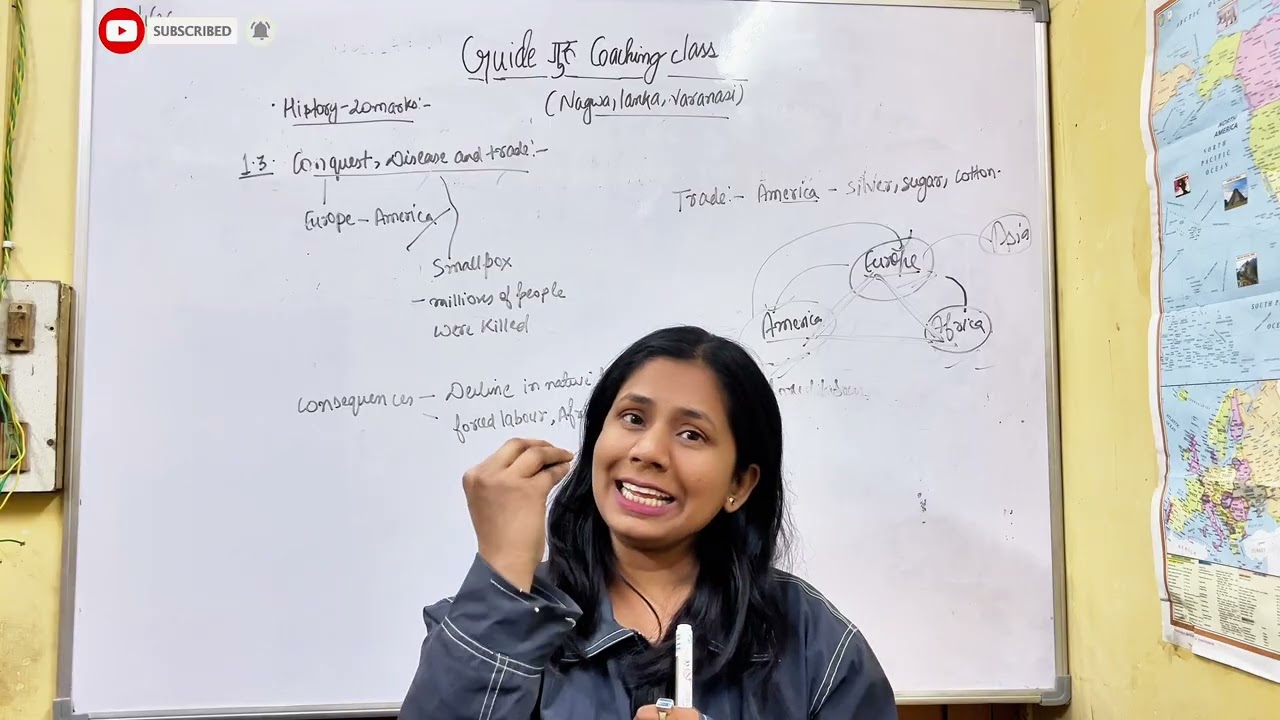 SUBSCRIBED
Guide गुरु Coaching class
(Nagwa, lanka, varanasi)
History-20marks:-
1.3. Conquest, Disease and trade:-
Europe - America
Smallpox
- millions of people
were killed
Trade:- America - silver, sugar, cotton.
Asia
Europe
America
Africa
consequences - Decline in native
forced labour,